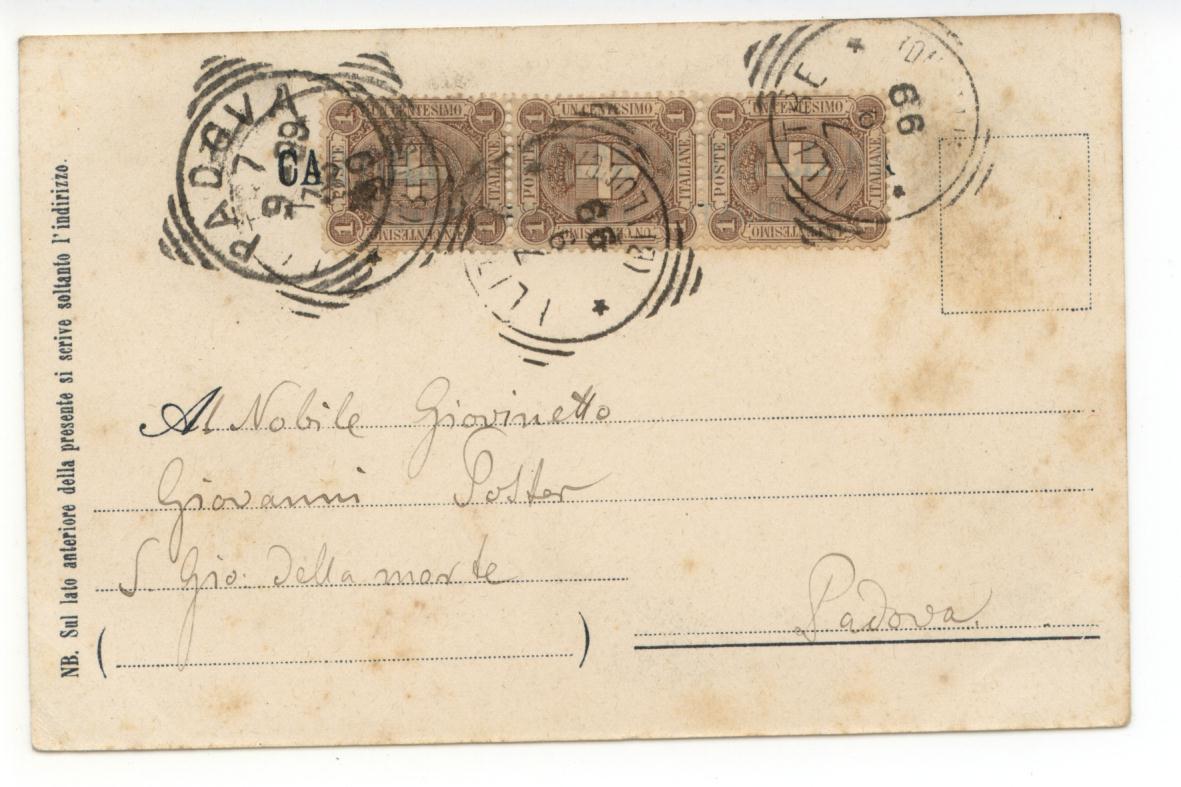 NB. Sul lato anteriore della presente si scrive soltanto l'indirizzo.
PADOVA
9 7
99
CA
1 UN CENTESIMO 1
POSTE ITALIANE
1 UN CENTESIMO 1
1 UN CENTESIMO 1
POSTE ITALIANE
1 UN CENTESIMO 1
1 UN CENTESIMO 1
POSTE ITALIANE
1 UN CENTESIMO 1
99
99
Al Nobile Giovinetto
Giovanni Poster
S. Gio. della morte
Padova.
( )